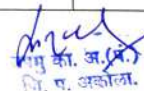 लघु का. अ.(पं.)
जि. प. अकोला.